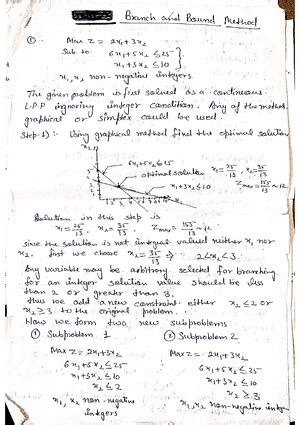 Branch and Bound Method
① Max Z = 2x₁ + 3x₂
Sub. to 6x₁ + 5x₂ ≤ 25
x₁ + 3x₂ ≤ 10
x₁, x₂ non-negative integers
The given problem is first solved as a continuous
L.P.P ignoring integer condition. Any of the method
graphical or simplex could be used.
Step-1):- Using graphical method find the optimal solution
x₂
6x₁ + 5x₂ = 25
optimal solution
x₁ + 3x₂ ≤ 10
x₁ = 25/13, x₂ = 35/13
Zmax = 155/13 ~ 12
Solution in this step is
x₁ = 25/13, x₂ = 35/13, Zmax = 155/13 ~ 12
since the solution is not integral valued neither x₁ nor
x₂. first we choose x₂ = 35/13 ⇒ 2 < x₂ < 3.
Any variable may be arbitrary selected for branching
for an integer solution value should be less
than 2 or greater than 3.
thus we add a new constraint either x₂ ≤ 2 or
x₂ ≥ 3 to the original problem.
Now we form two new subproblems
① Subproblem 1
② Subproblem 2
Max Z = 2x₁ + 3x₂
6x₁ + 5x₂ ≤ 25
x₁ + 3x₂ ≤ 10
x₂ ≤ 2
x₁, x₂ non-negative
integers
Max Z = 2x₁ + 3x₂
6x₁ + 5x₂ ≤ 25
x₁ + 3x₂ ≤ 10
x₂ ≥ 3
x₁, x₂ non-negative integ